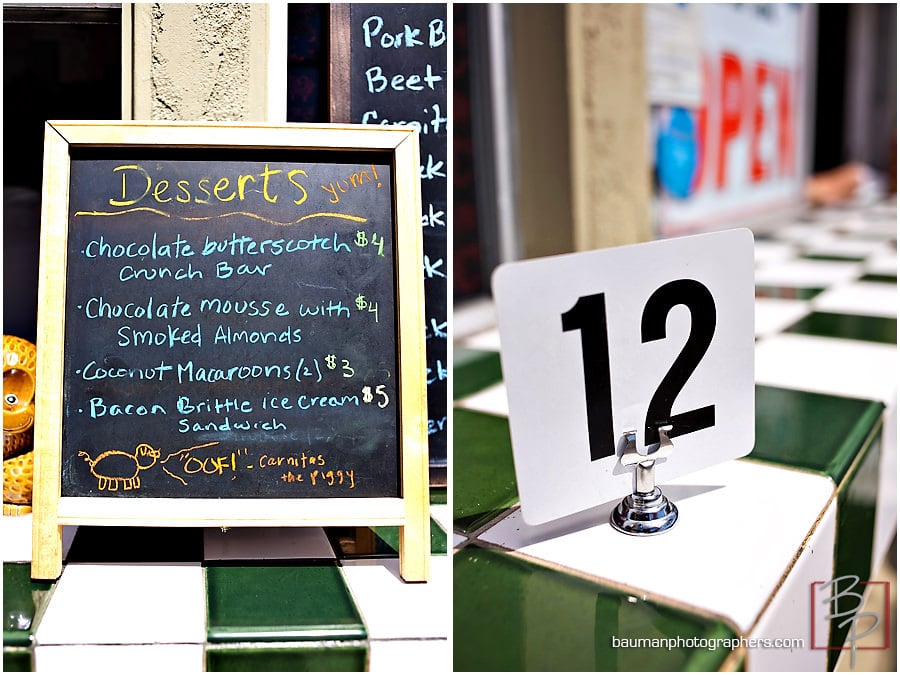 Pork B
Beet
Carnit
Desserts yum!
· Chocolate butterscotch $4
Crunch Bar
· Chocolate mousse with $4
Smoked Almonds
· Coconut Macaroons (2) $3
· Bacon Brittle ice cream $5
Sandwich
"OUF!" - Carnitas
the Piggy
OPEN
12
BP
baumanphotographers.com